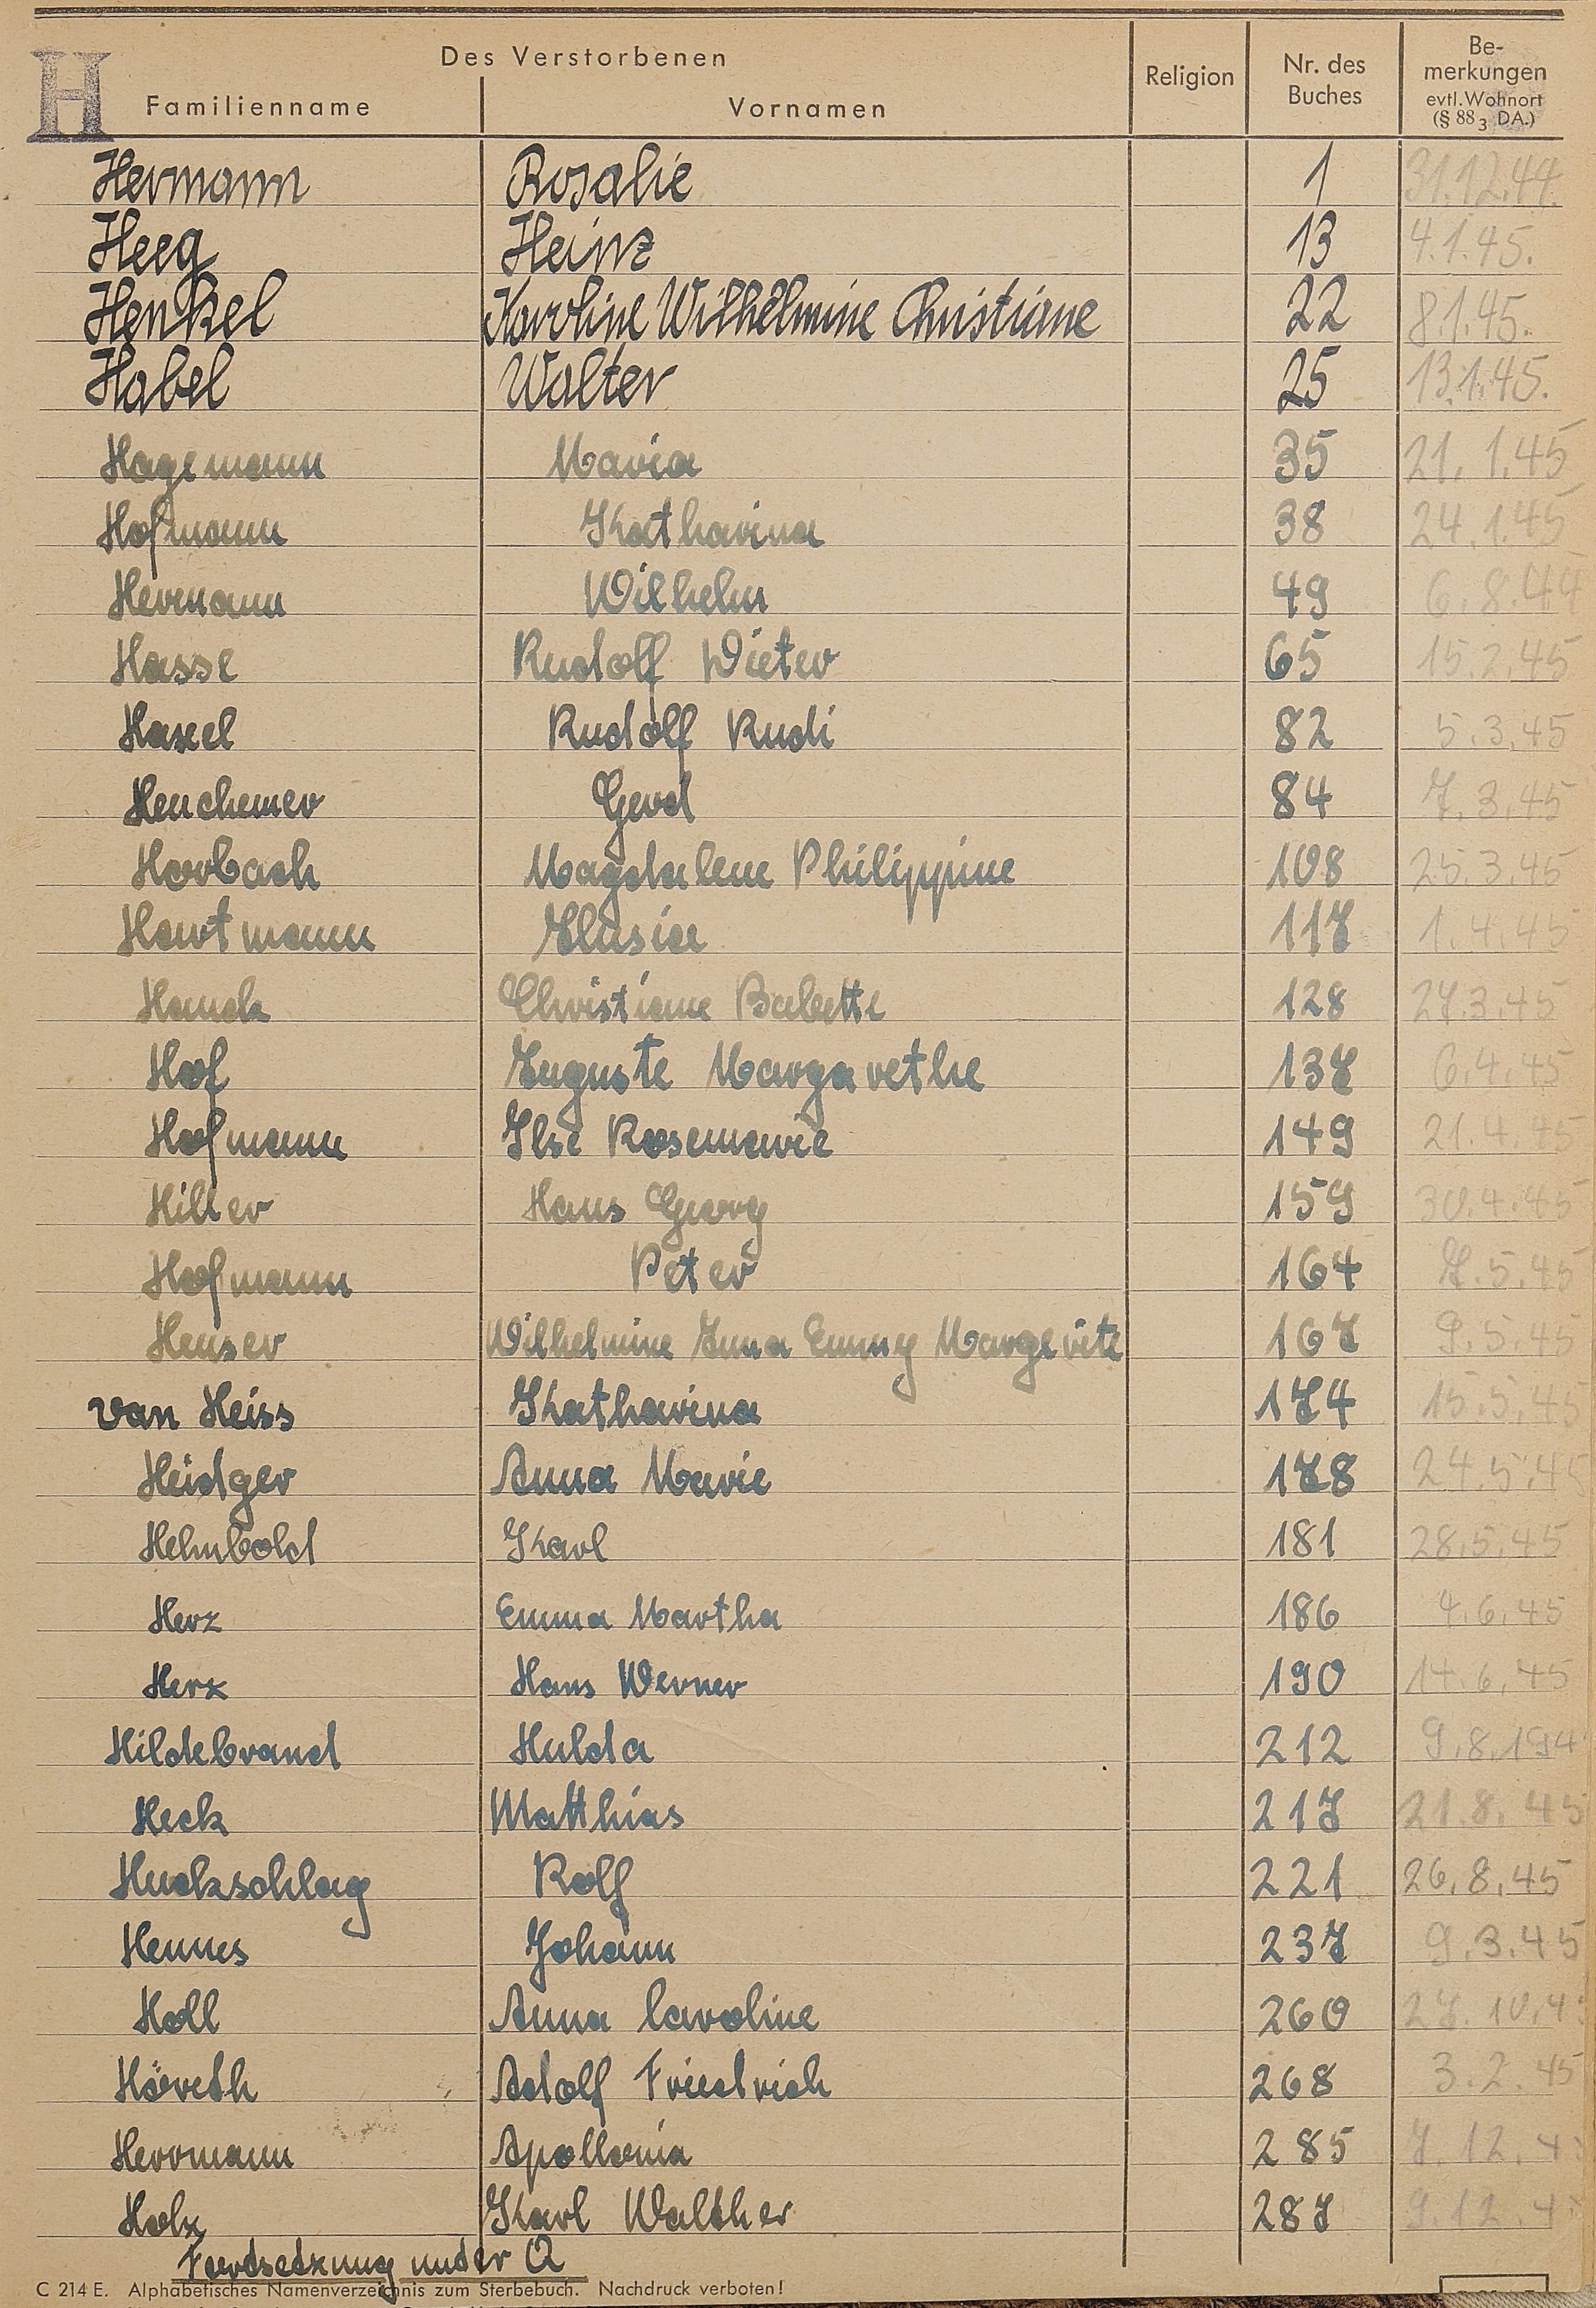 H
Des Verstorbenen
Familienname Vornamen Religion Nr. des Buches Be-merkungen evtl. Wohnort (§ 88 3 DA.)
Hermann Rosalie 1 31.12.44.
Heeg Heinz 13 4.1.45.
Henkel Karoline Wilhelmine Christiane 22 8.1.45.
Habel Walter 25 13.1.45.
Hagemann Maria 35 21.1.45
Hofmann Katharina 38 24.1.45
Hermann Wilhelm 49 6.8.44
Hasse Rudolf Dieter 65 15.2.45
Hasel Rudolf Rudi 82 5.3.45
Henchemer Gerd 84 7.3.45
Horbach Magdalene Philippine 108 25.3.45
Hartmann 117 1.4.45
Hauck Christiane Babette 128 27.3.45
Hof Auguste Margarethe 137 6.4.45
Hofmann Ilse Rosemarie 149 21.4.45
Hiller Hans Georg 159 30.4.45
Hofmann Peter 164 7.5.45
Heuser Wilhelmine Anna Emmy Margerite 167 9.5.45
van Heiss Katharina 174 15.5.45
Heidger Anna Marie 178 24.5.45
Helmbold Karl 181 28.5.45
Herz Emma Martha 186 4.6.45
Herz Hans Werner 190 14.6.45
Hildebrand Hulda 212 9.8.194
Heck Matthias 217 21.8.45
Huckschlag Rolf 221 26.8.45
Hennes Johann 237 9.3.45
Holl Anna Caroline 260 27.10.4
Höreth Adolf Friedrich 268 3.2.45
Herrmann Apollonia 285 7.12.4
Holz Karl Walther 287 9.12.4
Fordsetzung under Q
C 214 E. Alphabetisches Namenverzeichnis zum Sterbebuch. Nachdruck verboten!